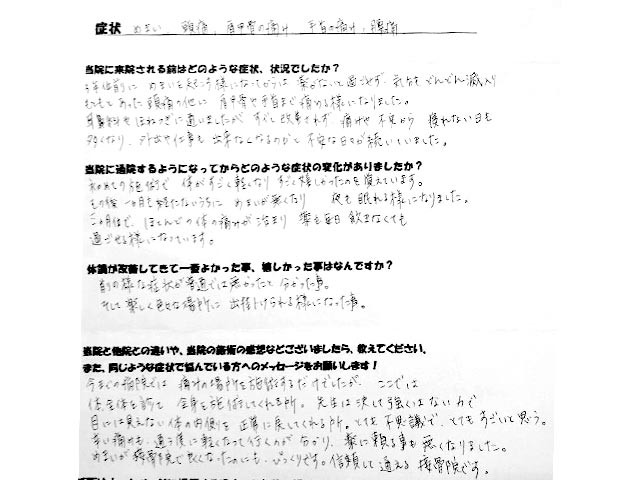 症状 めまい、頭痛、肩甲骨の痛み 手首の痛み、腰痛
当院に来院される前はどのような症状、状況でしたか?
めまいを起こす様になってからは 薬がないと過ごせず、気分もどんどん滅入り
もともとあった頭痛の他に 肩甲骨や手首まで痛める様になりました。
耳鼻科やほねつぎに通いましたが すぐに改善されず 痛みや不安から 眠れない日も
多くなり、外出や仕事も 出来なくなるのかと 不安な日々が続いていました。
当院に通院するようになってからどのような症状の変化がありましたか?
初めての施術で 体がすごく軽くなり すごく嬉しかったのを覚えています。
その後一ヶ月も経たないうちに めまいが無くなり 夜も眠れる様になりました。
ほとんどの体の痛みが治まり 薬を毎日飲まなくても
過ごせる様になっています。
体調が改善してきて一番よかった事、嬉しかった事はなんですか?
前の様な症状が普通では無かったと 分かった事。
そして楽しく色々な場所に 出掛けられる様になった事。
当院と他院との違いや、当院の施術の感想などございましたら、教えてください。
また、同じような症状で悩んでいる方へのメッセージをお願いします!
今までの病院では 痛みの場所を施術するだけでしたが、ここでは
体全体を診て 全身を施術してくれる所。先生は決して強くはない力で
目には見えない体の内側を 正常に戻してくれる所。とても不思議で、とてもすごいと思う。
辛い痛みも、通う度に軽くなって行くのが分かり、薬に頼る事も無くなりました。
めまいが接骨院で良くなったのにも、びっくりです。信頼して通える 接骨院です。